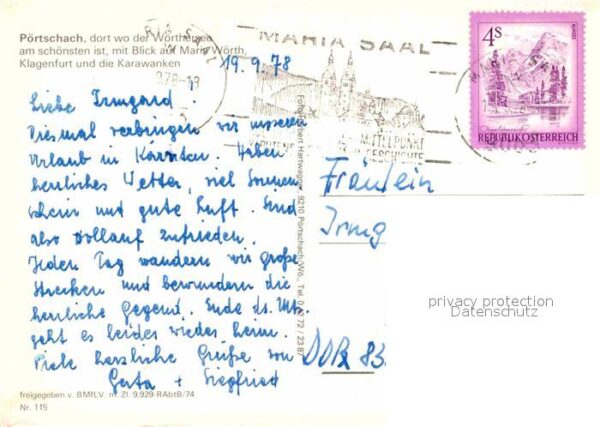 Pörtschach, dort wo der Wörthersee
am schönsten ist, mit Blick auf Maria Wörth,
Klagenfurt und die Karawanken
MARIA SAAL
MITTELPUNKT
GESCHICHTE
4s
REPUBLIK ÖSTERREICH
19.9.78
Liebe Irmgard.
Diesmal verbringen wir unseren
Urlaub in Kärnten. Haben
herrliches Wetter, viel Sonnen
schein und gute Luft. Sind
also vollauf zufrieden.
Jeden Tag wandern wir große
Strecken und bewundern die
herrliche Gegend. Ende ds. Mts.
geht es leider wieder heim.
Viele herzliche Grüße von
Gerta + Siegfried
Fräulein
Irmg
DDR 83
Herbert Hartwagner, 9210 Pörtschach/Wö., Tel. 0 42 72 / 23 87
privacy protection
Datenschutz
freigegeben v. BMfLV. m. Zl. 9.929-RAbtB/74
Nr. 115